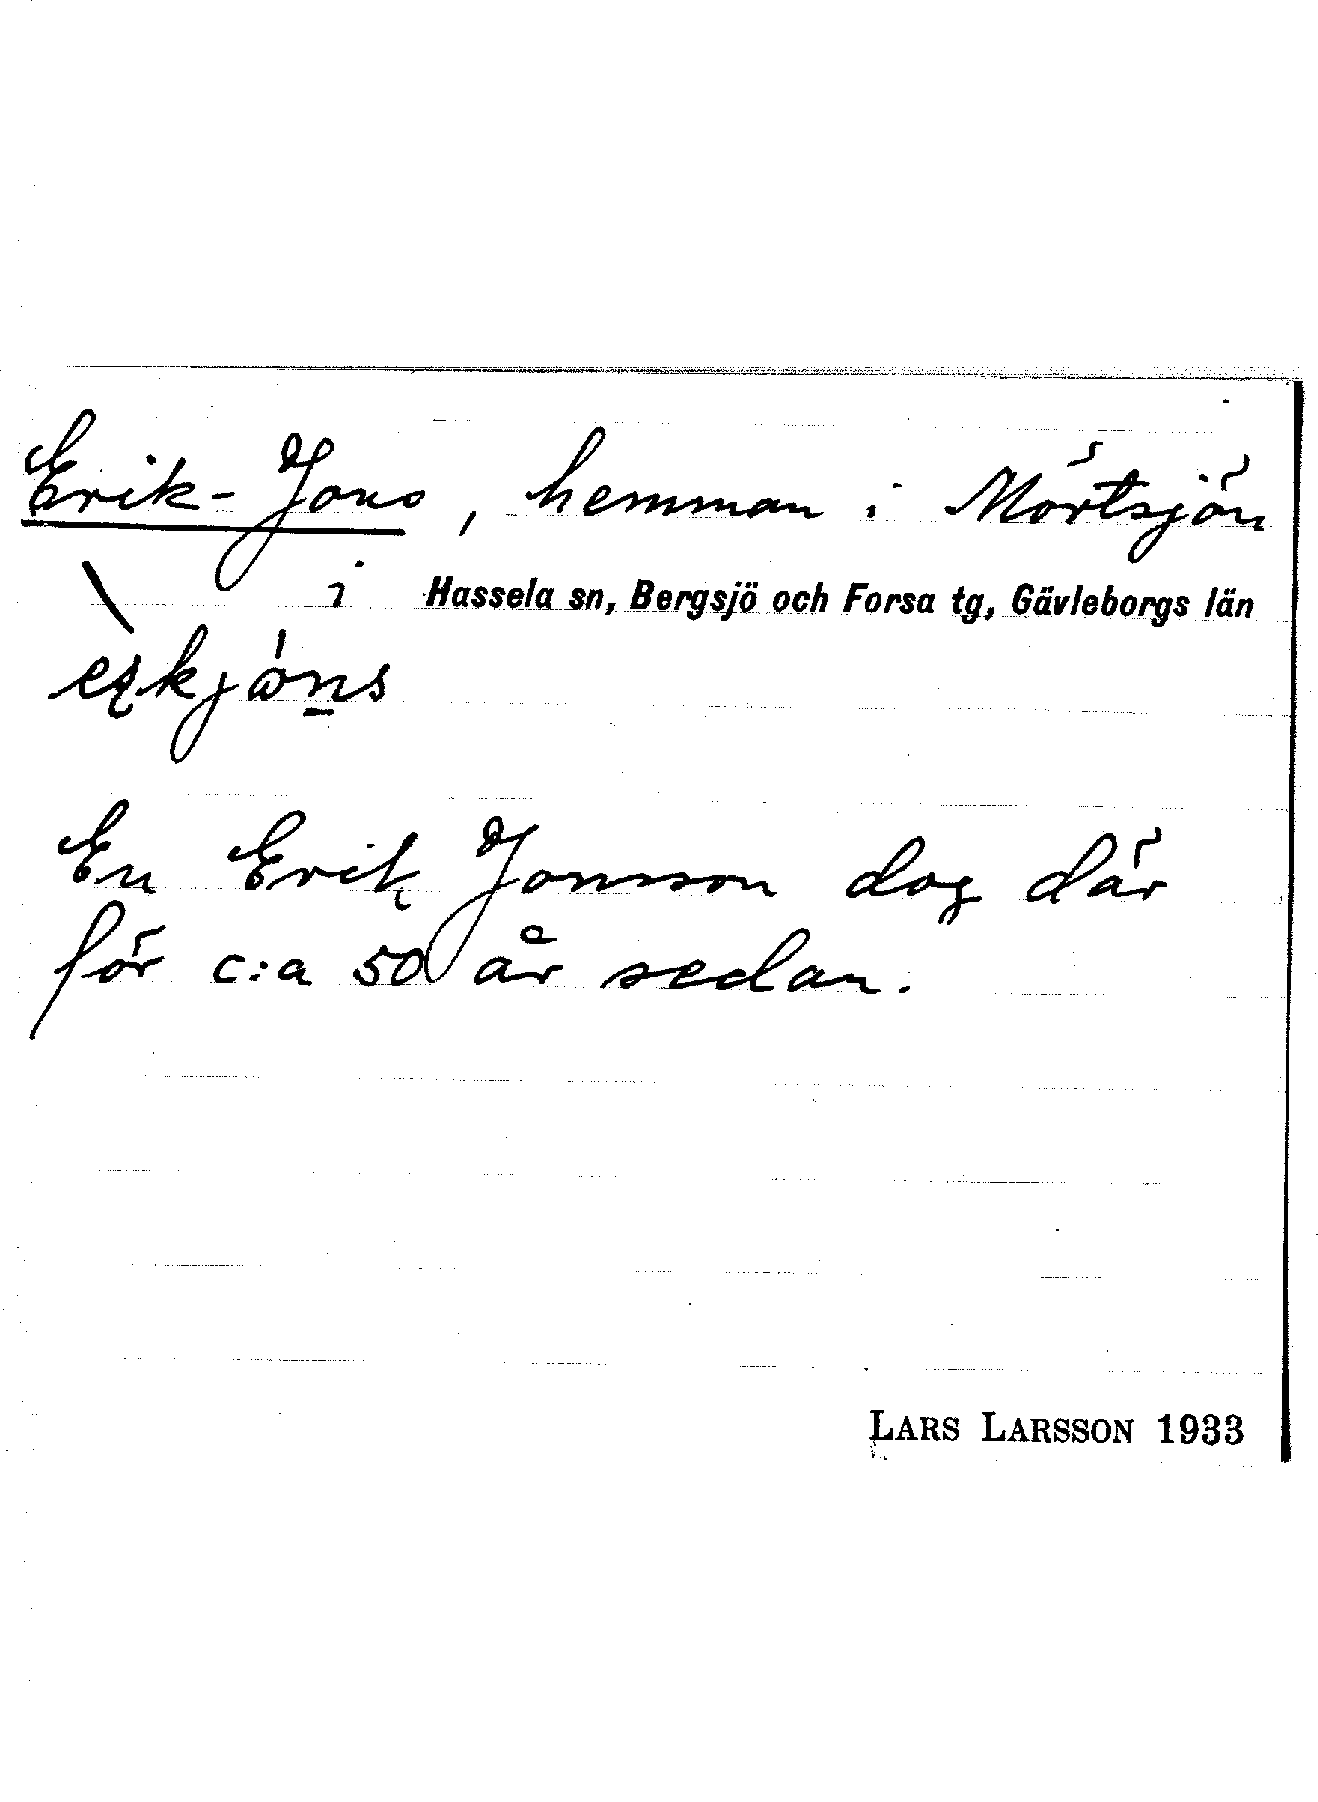 Erik-Jons, hemman i Mörtsjön
i Hassela sn, Bergsjö och Forsa tg, Gävleborgs län
En Erik Jonsson dog där
för c:a 50 år sedan.
LARS LARSSON 1933